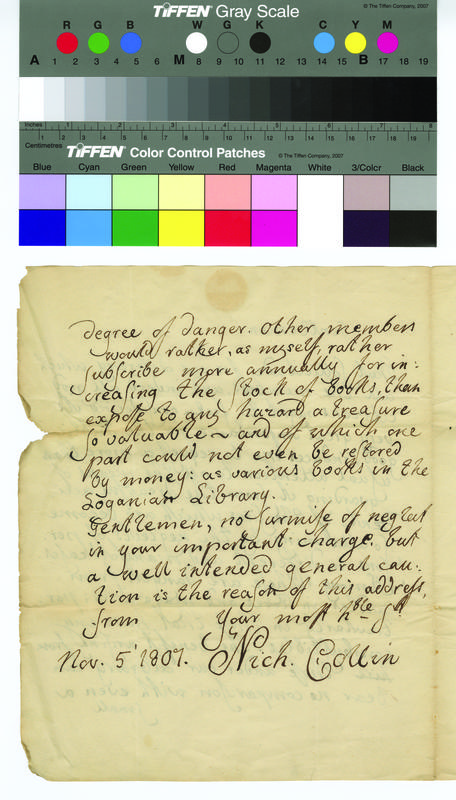 TIFFEN Gray Scale
© The Tiffen Company, 2007
R G B W G K C Y M
A 1 2 3 4 5 6 M 8 9 10 11 12 13 14 15 B 17 18 19
Inches 1 2 3 4 5 6 7 8
Centimetres 1 2 3 4 5 6 7 8 9 10 11 12 13 14 15 16 17 18 19
TIFFEN Color Control Patches © The Tiffen Company, 2007
Blue Cyan Green Yellow Red Magenta White 3/Color Black
degree of danger. Other members
would rather, as myself, rather
subscribe more annually for in:
creasing the stock of books, than
expose to any hazard a treasure
so valuable ~ and of which one
part could not even be restored
by money: as various books in the
Loganian Library.
Gentlemen, no surmise of neglect
in your important charge, but
a well intended general cau:
tion is the reason of this address,
from your most hble St
Nov. 5 1807. Nich. Collin